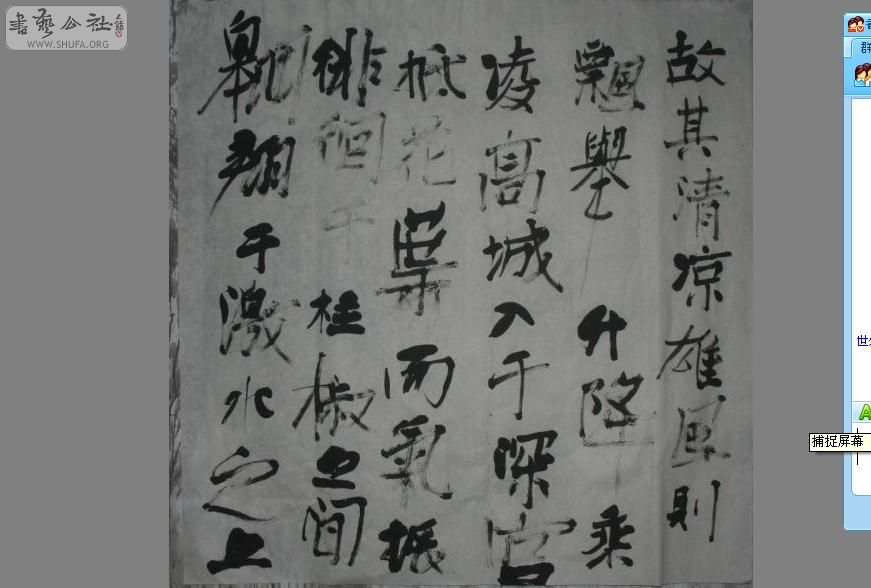 書藝公社
WWW.SHUFA.ORG
故其清凉雄風則
飄舉升降乘
凌高城入于深宫
抵花葉而氣振
徘徊于桂椒之間
翱翔于激水之上
群
捕捉屏幕